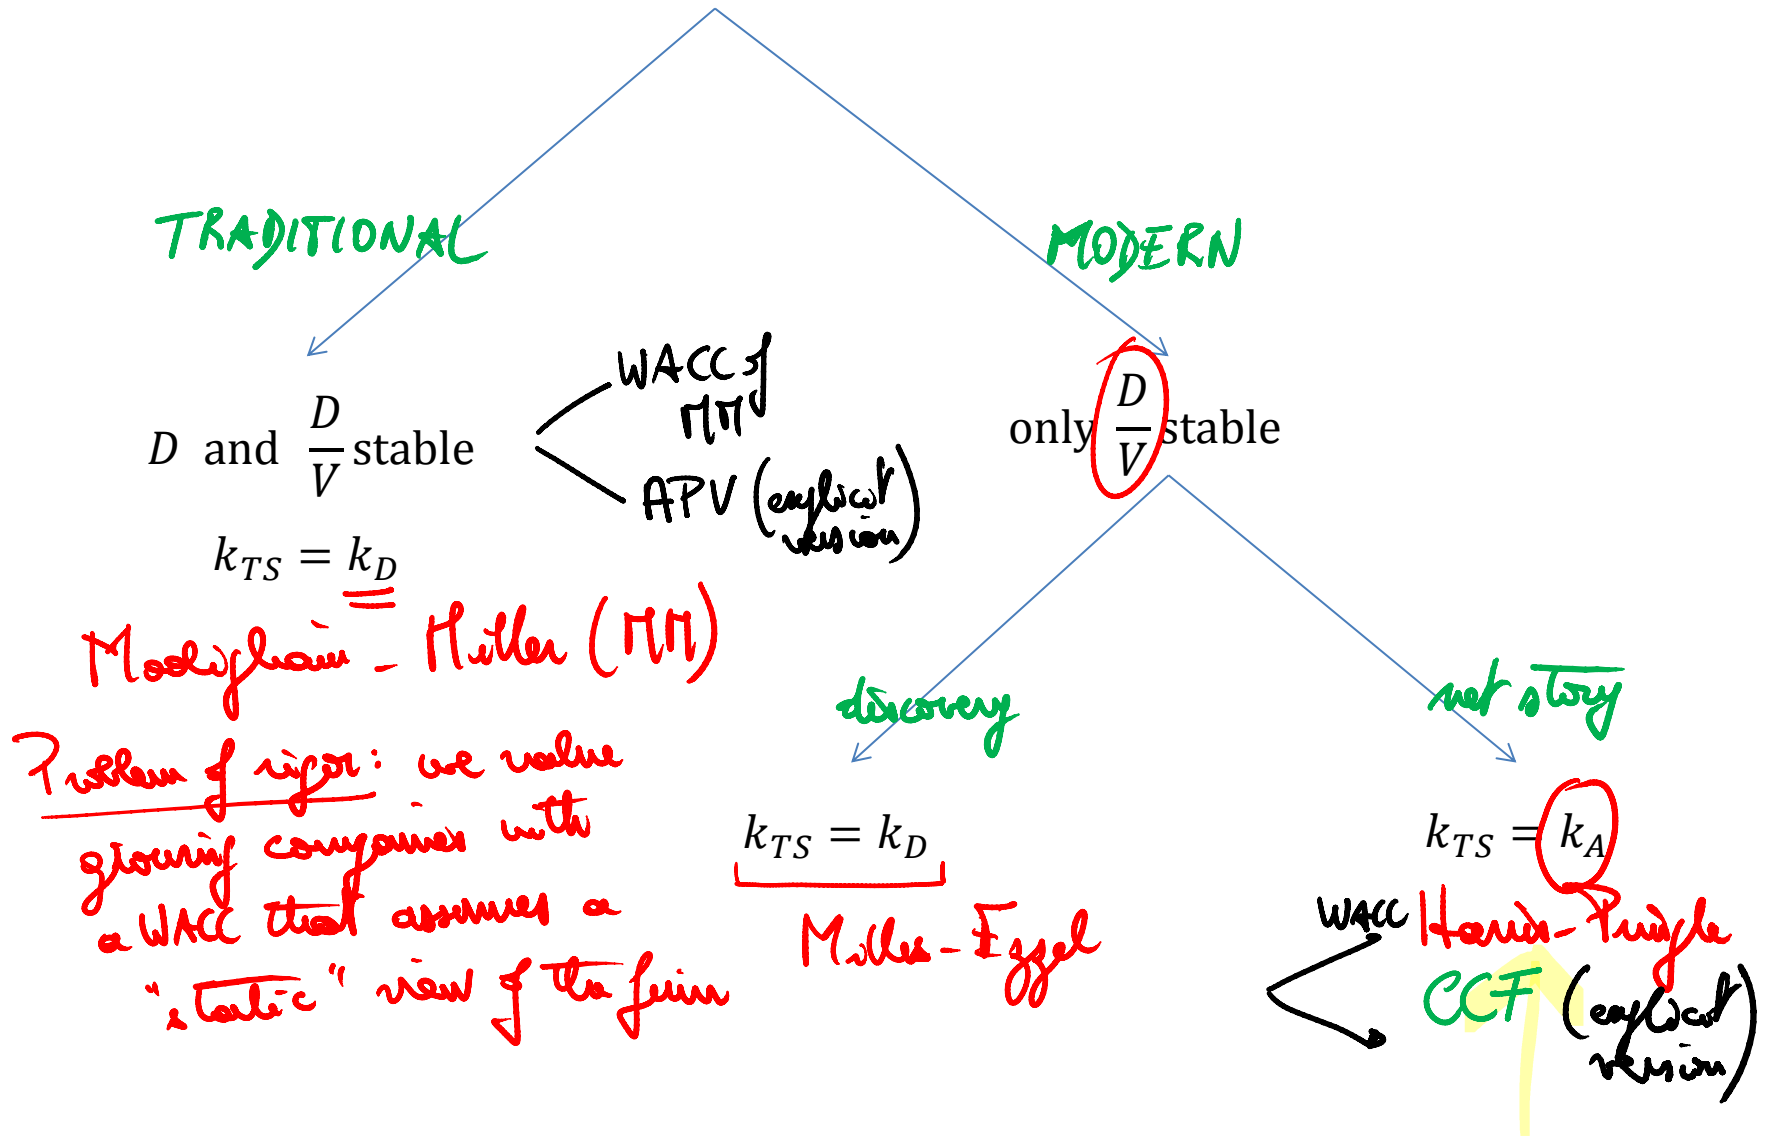 TRADITIONAL
MODERN
D and D/V stable
WACC of
MM
APV (explicit
version)
only D/V stable
k_TS = k_D
Modigliani - Miller (MM)
Problem of rigor: we value
growing companies with
a WACC that assumes a
"static" view of the firm
discovery
net story
k_TS = k_D
Miles-Ezzel
k_TS = k_A
WACC Harris-Pringle
CCF (explicit
version)